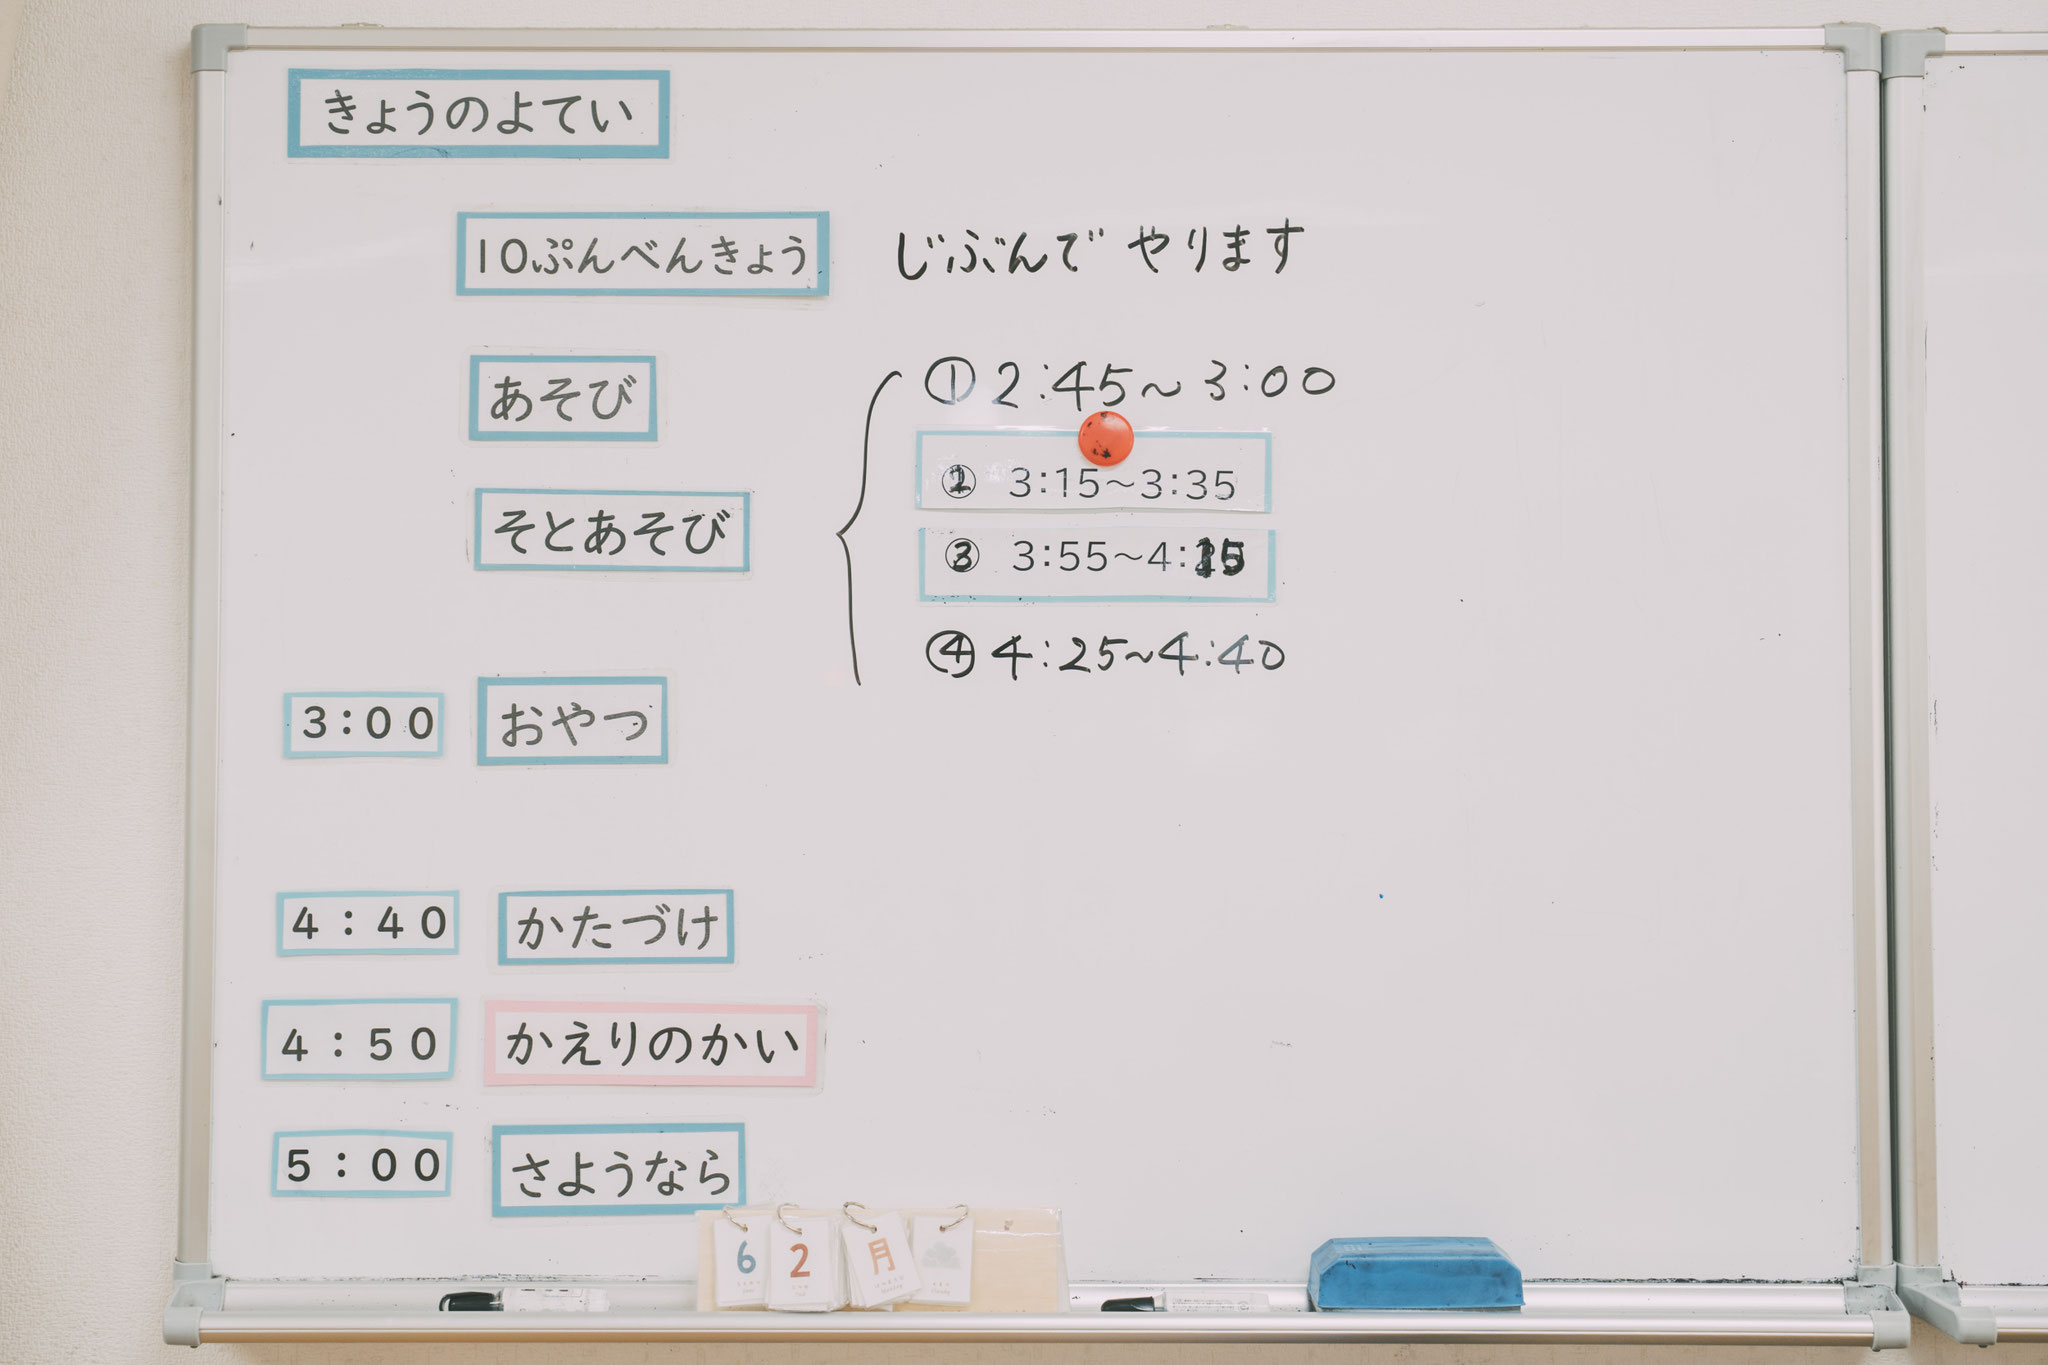 きょうのよてい
10ぷんべんきょう じぶんで やります
あそび
そとあそび
① 2:45～3:00
② 3:15～3:35
③ 3:55～4:15
④ 4:25～4:40
3:00 おやつ
4:40 かたづけ
4:50 かえりのかい
5:00 さようなら
6 2 月